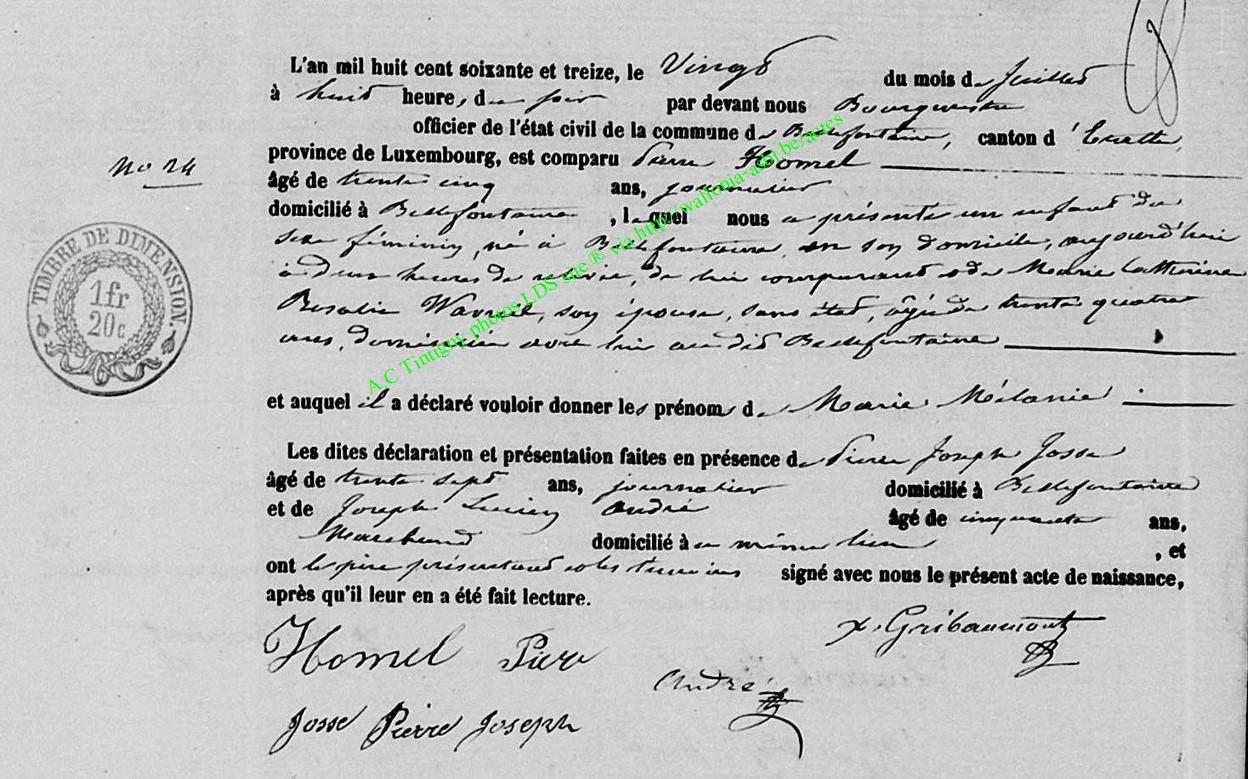 L'an mil huit cent soixante et treize, le Vingt du mois de Juillet
à huit heures, du soir par devant nous Bourgmestre
officier de l'état civil de la commune de Bellefontaine, canton d'Etalle,
No 24
province de Luxembourg, est comparu Pierre Homel
âgé de trente cinq ans, journalier
domicilié à Bellefontaine, lequel nous a présenté un enfant du
sexe féminin, né à Bellefontaine, en son domicile, aujourd'hui
à deux heures de relevée, de lui comparant et de Marie Catherine
Rosalie Wavreil, son épouse, sans état, âgée de trente quatre
ans, domiciliée avec lui audit Bellefontaine
et auquel il a déclaré vouloir donner les prénoms de Marie Mélanie
Les dites déclaration et présentation faites en présence de Pierre Joseph Josse
âgé de trente sept ans, journalier domicilié à Bellefontaine
et de Joseph Lucien André âgé de cinquante ans,
Marchand domicilié à u même lieu, et
ont le père présentant et les témoins signé avec nous le présent acte de naissance,
après qu'il leur en a été fait lecture.
X. Gribaumont
Homel Pier
André
Josse Pierre Joseph
TIMBRE DE DIMENSION.
1 fr
20 c
A.C Tintigny photos LDS avec ® via http://wallonia-asbl.be/actes